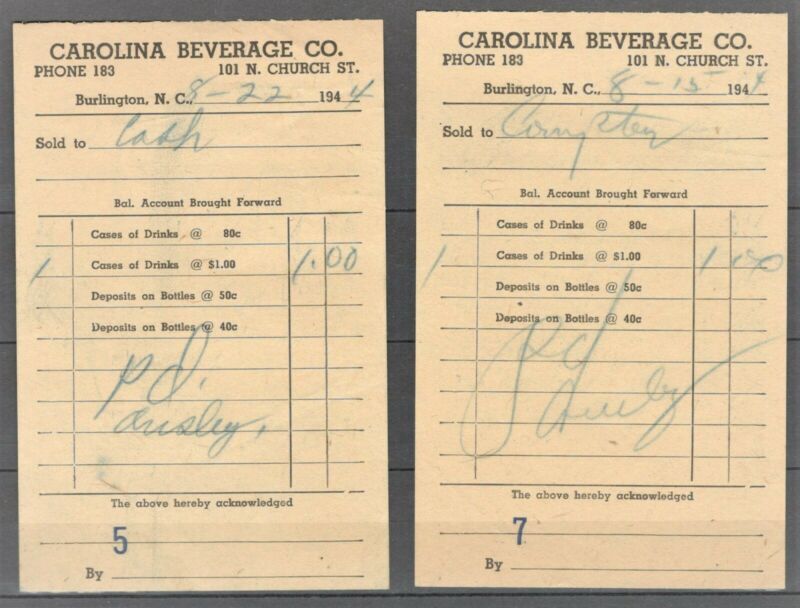 CAROLINA BEVERAGE CO.
PHONE 183 101 N. CHURCH ST.
Burlington, N. C., 8-22 1944
Sold to Cash
Bal. Account Brought Forward
Cases of Drinks @ 80c
1 Cases of Drinks @ $1.00 1.00
Deposits on Bottles @ 50c
Deposits on Bottles @ 40c
pd.
Ansley,
The above hereby acknowledged
5
By
CAROLINA BEVERAGE CO.
PHONE 183 101 N. CHURCH ST.
Burlington, N. C., 8-15 1944
Sold to
Bal. Account Brought Forward
Cases of Drinks @ 80c
1 Cases of Drinks @ $1.00 1.00
Deposits on Bottles @ 50c
Deposits on Bottles @ 40c
pd
The above hereby acknowledged
7
By